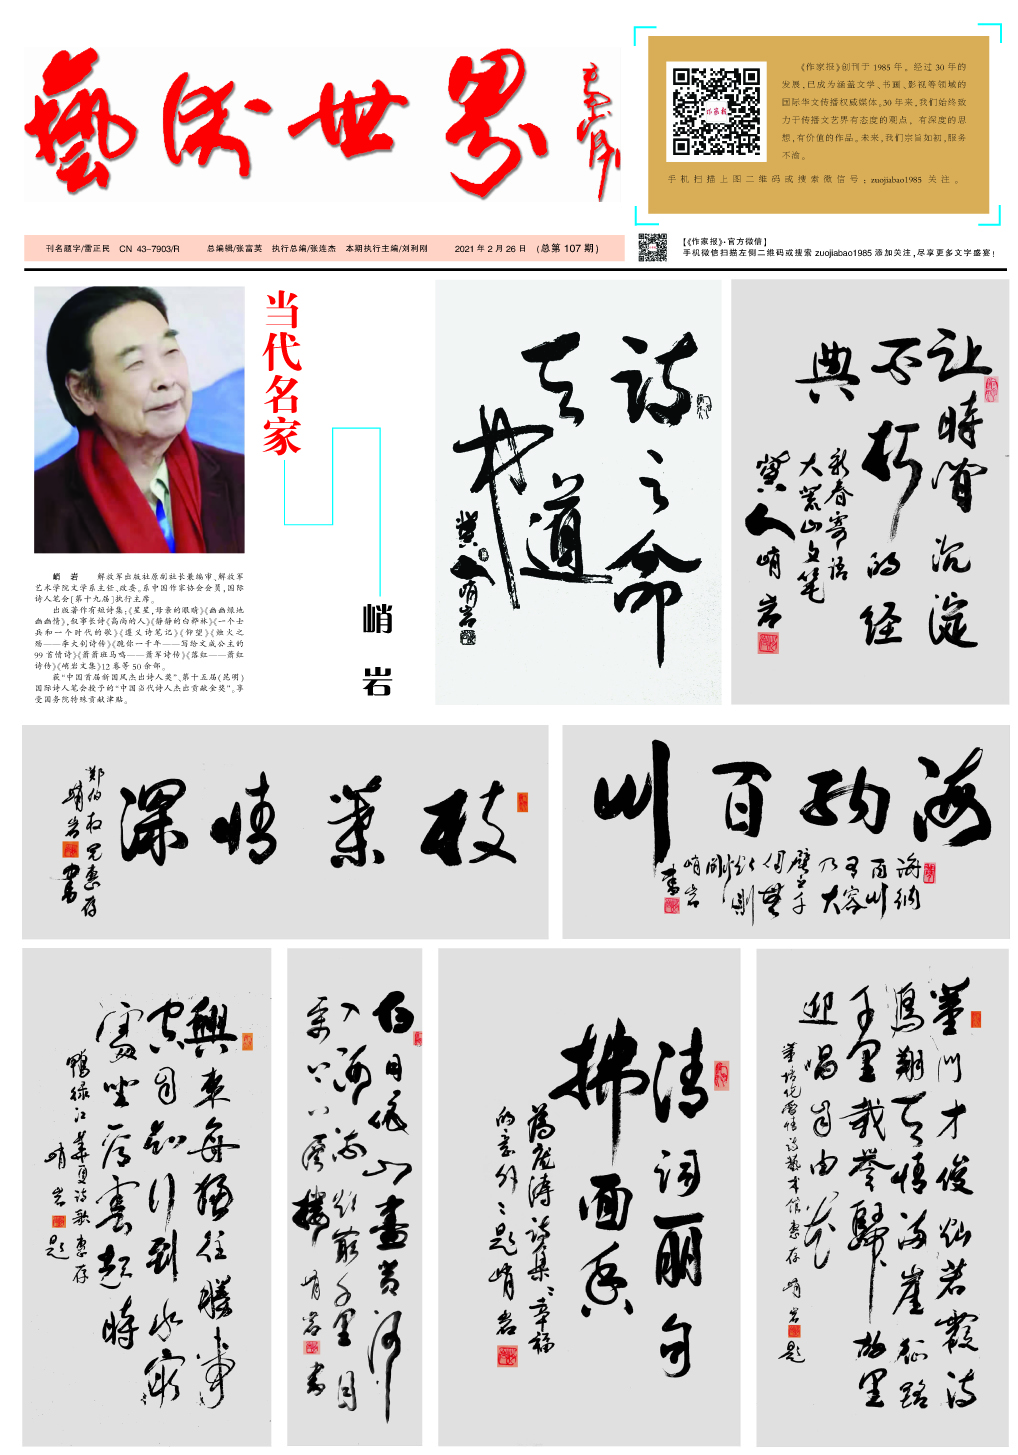 藝術世界
《作家报》创刊于 1985 年。经过 30 年的
发展,已成为涵盖文学、书画、影视等领域的
国际华文传播权威媒体。30 年来,我们始终致
力于传播文艺界有态度的观点,有深度的思
想,有价值的作品。未来,我们宗旨如初,服务
不渝。
手机扫描上图二维码或搜索微信号:zuojiabao1985 关注。
刊名题字/雷正民 CN 43-7903/R 总编辑/张富英 执行总编/张连杰 本期执行主编/刘利刚 2021 年 2 月 26 日 (总第 107 期)
【《作家报》·官方微信】
手机微信扫描左侧二维码或搜索 zuojiabao1985 添加关注,尽享更多文字盛宴!
当代名家
峭岩
峭 岩 解放军出版社原副社长兼编审、解放军
艺术学院文学系主任、政委。系中国作家协会会员,国际
诗人笔会[第十九届]执行主席。
出版著作有短诗集:《星星,母亲的眼睛》《幽幽绿地
幽幽情》,叙事长诗《高尚的人》《静静的白桦林》《一个士
兵和一个时代的歌》《遵义诗笔记》《仰望》《烛火之
殇——李大钊诗传》《跪你一千年——写给文成公主的
99 首情诗》《萧萧班马鸣——萧军诗传》《落红——萧红
诗传》《峭岩文集》12 卷等 50 余部。
获“中国首届新国风杰出诗人奖”、第十五届(昆明)
国际诗人笔会授予的“中国当代诗人杰出贡献金奖”。享
受国务院特殊贡献津贴。
诗之命
天道
冀人峭岩
让时间沉淀
不朽的经
典
新春寄语
大众山文笔
冀人峭岩
枝叶情深
郑伯权兄惠存
峭岩
书
海纳百川
海纳
百川
有容
乃大
壁立千
仞无
欲则
刚
峭岩
书
兴来每独往胜事
空自知行到水穷
处坐看云起时
鸭绿江华夏诗歌惠存
峭岩题
白日依山尽黄河
入海流欲穷千里目
更上一层楼
峭岩书
清词丽句
拂面香
为庞涛诗集《幸福
的意外》题峭岩